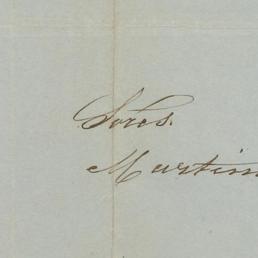 Sores.
Martin